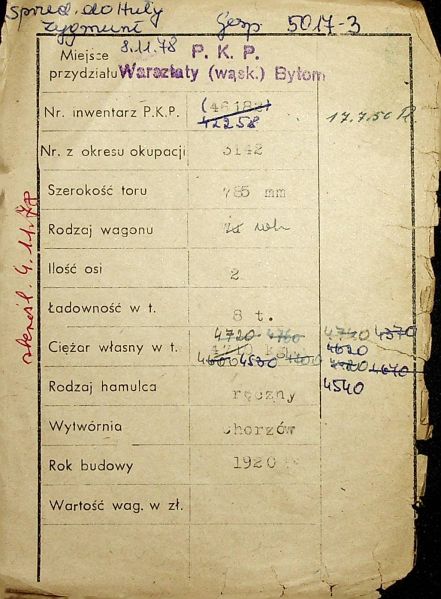 Sprzed. do Huty Gesp 5017-3
Zygmunt 8.11.78
Miejsce P. K. P.
przydziału Warsztaty (wąsk.) Bytom
Nr. inwentarz P.K.P. (46182)
42258 17.7.56
Nr. z okresu okupacji 3142
Szerokość toru 785 mm
Rodzaj wagonu
Ilość osi 2
Ładowność w t. 8 t.
4720 4760 4740 4370
Ciężar własny w t. 4620
4600 4530
4540
Rodzaj hamulca ręczny
Wytwórnia Chorzów
Rok budowy 1920
Wartość wag. w zł.
skreśl 4.11.78